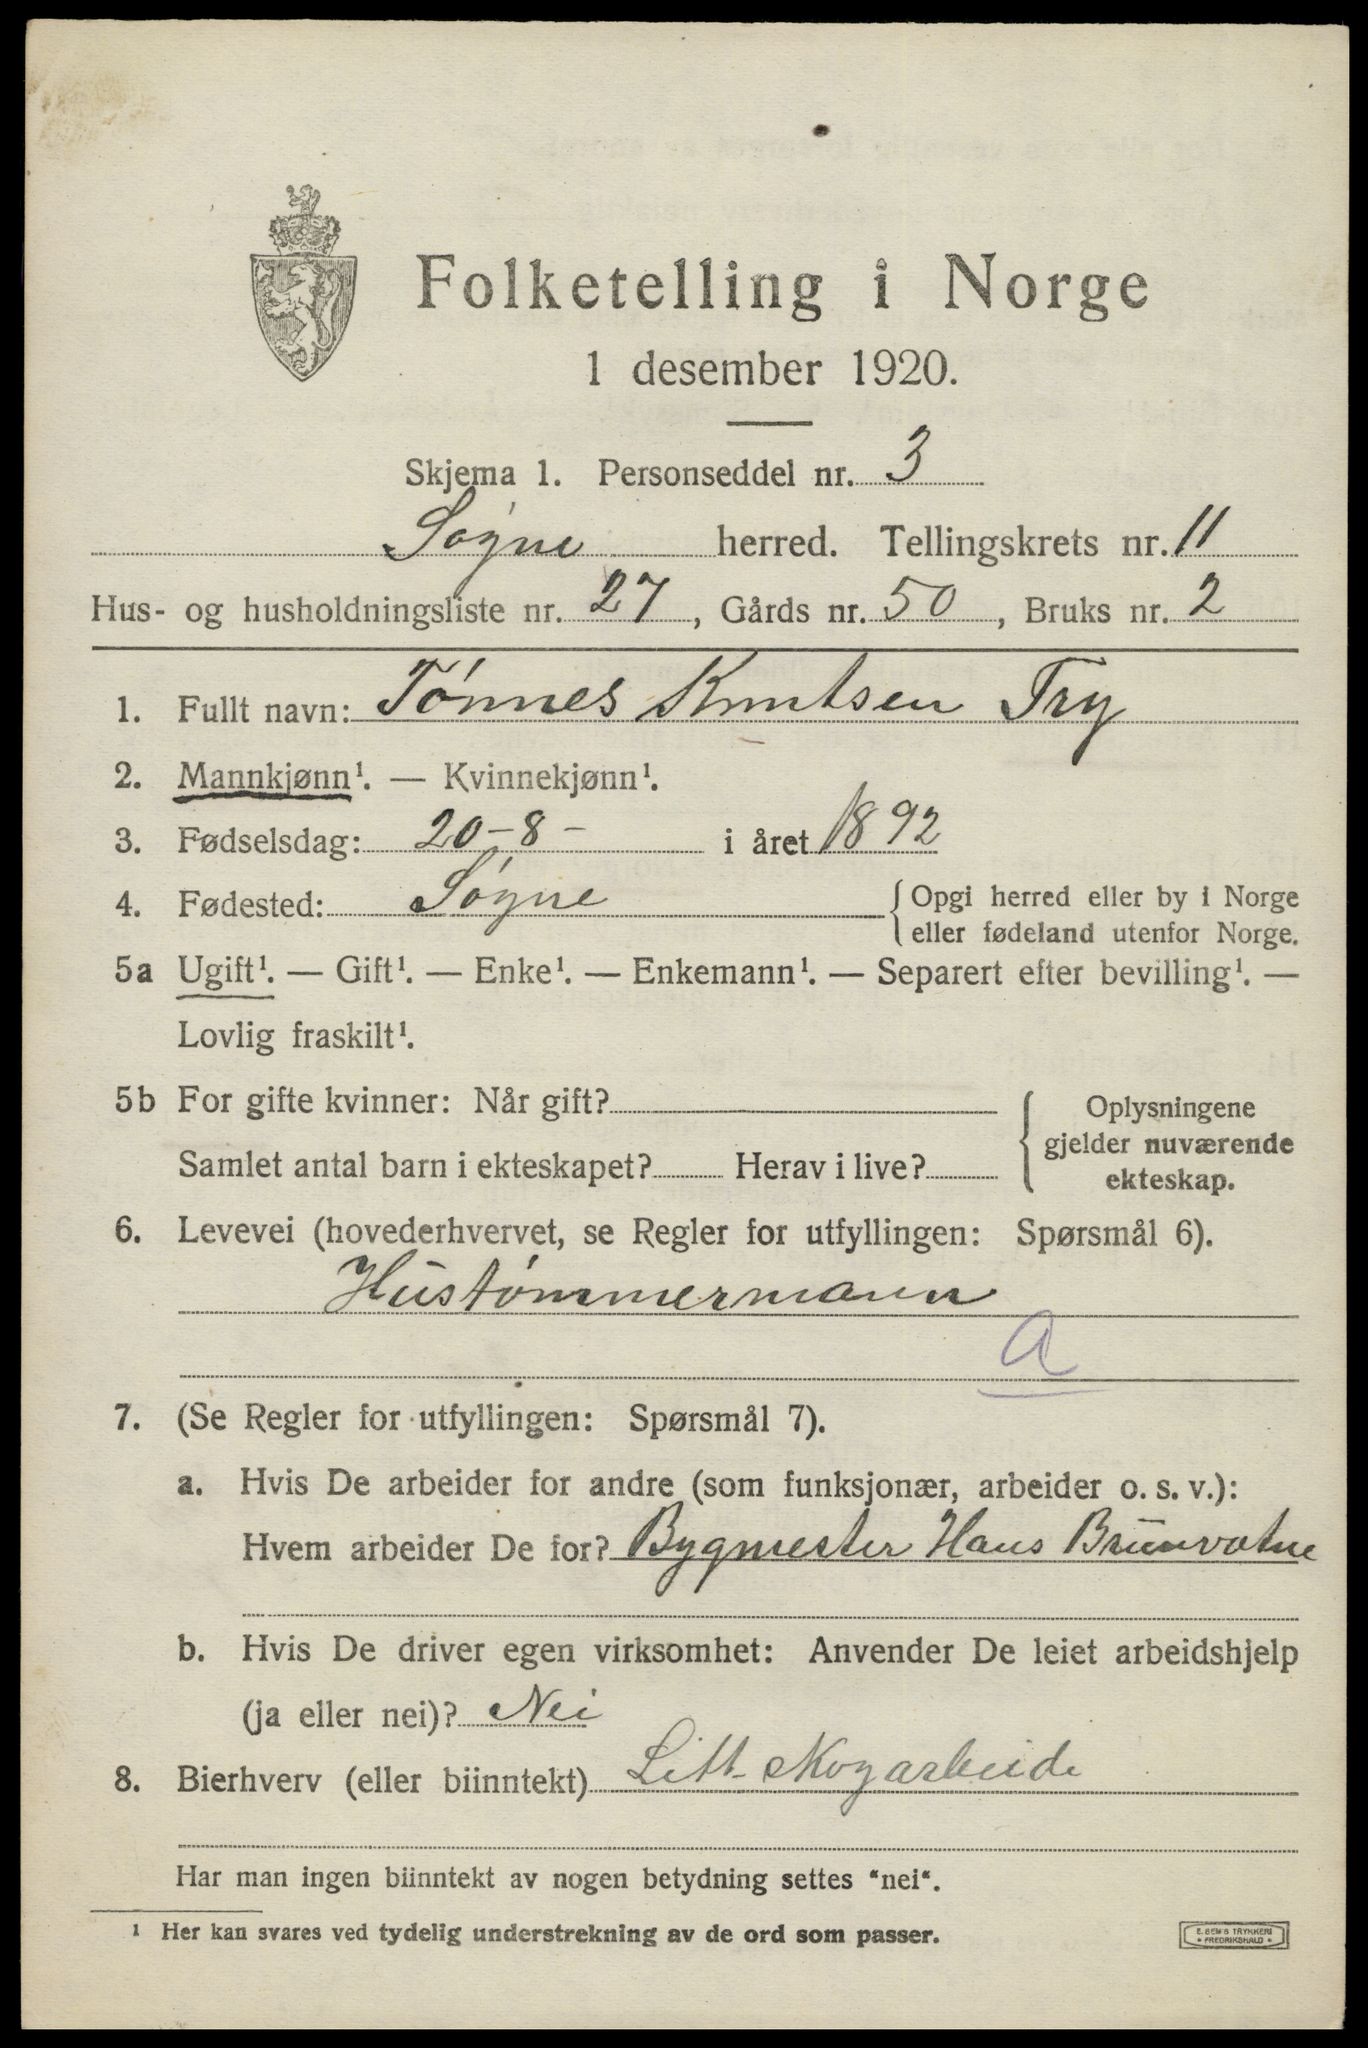 Folketelling i Norge
1 desember 1920.
Skjema 1. Personseddel nr. 3
Søgne herred. Tellingskrets nr. 11
Hus- og husholdningsliste nr. 27, Gårds nr. 50, Bruks nr. 2
1. Fullt navn: Tønnes Knutsen Try
2. Mannkjønn¹. — Kvinnekjønn¹.
3. Fødselsdag: 20-8- i året 1892
4. Fødested: Søgne {Opgi herred eller by i Norge
eller fødeland utenfor Norge.
5a Ugift¹. — Gift¹. — Enke¹. — Enkemann¹. — Separert efter bevilling¹. —
Lovlig fraskilt¹.
5b For gifte kvinner: Når gift? Oplysningene
gjelder nuværende
Samlet antal barn i ekteskapet? Herav i live?
ekteskap.
6. Levevei (hovederhvervet, se Regler for utfyllingen: Spørsmål 6).
Hustømmermann
a
7. (Se Regler for utfyllingen: Spørsmål 7).
a. Hvis De arbeider for andre (som funksjonær, arbeider o. s. v.):
Hvem arbeider De for? Bygmester Hans Brunvatne
b. Hvis De driver egen virksomhet: Anvender De leiet arbeidshjelp
(ja eller nei)? Nei
8. Bierhverv (eller biinntekt) Litt skogarbeide
Har man ingen biinntekt av nogen betydning settes "nei".
¹ Her kan svares ved tydelig understrekning av de ord som passer.
E. SEM'S TRYKKERI
* FREDRIKSHALD *